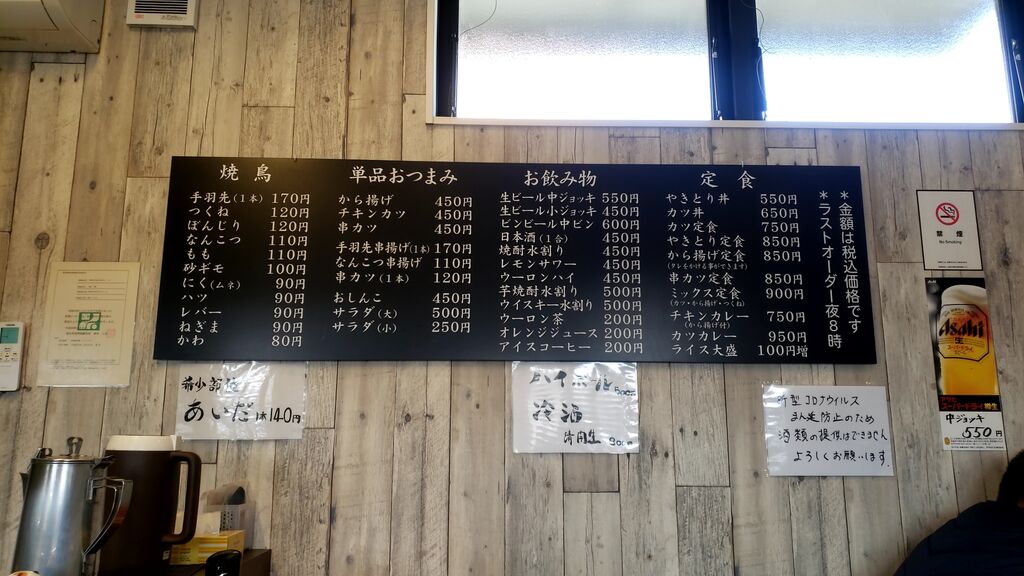 焼鳥
手羽先(1本) 170円
つくね 120円
ぼんじり 120円
なんこつ 110円
もも 110円
砂ギモ 100円
にく(ムネ) 90円
ハツ 90円
レバー 90円
ねぎま 90円
かわ 80円
単品おつまみ
から揚げ 450円
チキンカツ 450円
串カツ 450円
手羽先串揚げ(1本) 170円
なんこつ串揚げ 110円
串カツ(1本) 120円
おしんこ 450円
サラダ(大) 500円
サラダ(小) 250円
お飲み物
生ビール中ジョッキ 550円
生ビール小ジョッキ 450円
ビンビール中ビン 600円
日本酒(1合) 450円
焼酎水割り 450円
レモンサワー 450円
ウーロンハイ 450円
芋焼酎水割り 500円
ウイスキー水割り 500円
ウーロン茶 200円
オレンジジュース 200円
アイスコーヒー 200円
定食
やきとり丼 550円
カツ丼 650円
カツ定食 750円
やきとり定食 850円
から揚げ定食 850円
(タレをかける事ができます)
串カツ定食 850円
ミックス定食 900円
(カツ・から揚げ・つくね)
チキンカレー 750円
(から揚げ付)
カツカレー 950円
ライス大盛 100円増
*金額は税込価格です
*ラストオーダー夜8時
禁煙
No Smoking
Asahi
生
アサヒ
スーパードライ樽生
中ジョッキ
550円
希少部位
あいだ 1本140円
ハイボール 500円
冷酒
300円
新型コロナウイルス
まん延防止のため
酒類の提供はできません
よろしくお願いします.